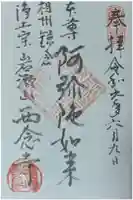 奉拝 令和六年六月九日
本尊 阿弥陀如来
相州鎌倉
浄土宗 岩瀬山 西念寺